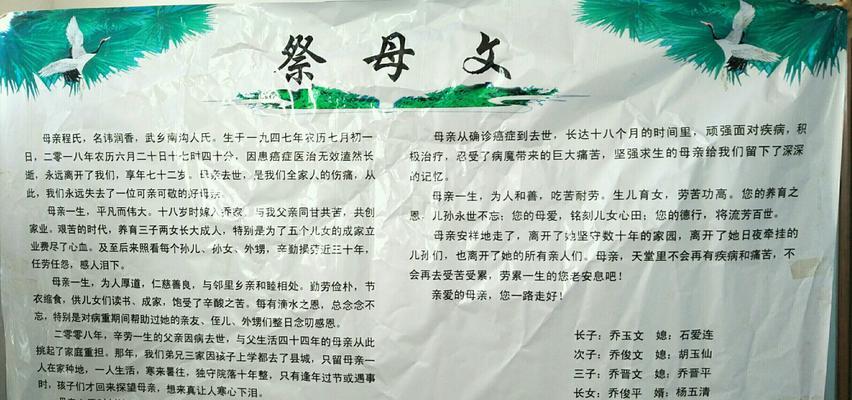 祭母文
母亲程氏，名讳润香，武乡南沟人氏。生于一九四七年农历七月初一
日，二零一八年农历六月二十日十七时四十分，因患癌症医治无效溘然长
逝，永远离开了我们，享年七十二岁。母亲去世，是我们全家人的伤痛，从
此，我们永远失去了一位可亲可敬的好母亲。
母亲一生，平凡而伟大。十八岁时嫁入乔家，与我父亲同甘共苦，共创
家业。艰苦的年代，养育三子两女长大成人，特别是为了五个儿女的成家立
业费尽了心血。及至后来照看每个孙儿、孙女、外甥，辛勤操劳近三十年，
任劳任怨，感人泪下。
母亲一生，为人厚道，仁慈善良，与邻里乡亲和睦相处。勤劳俭朴，节
衣缩食，供儿女们读书、成家，饱受了辛酸之苦。每有滴水之恩，总念念不
忘，特别是对病重期间帮助过她的亲友、侄儿、外甥们整日念叨感恩。
二零零八年，辛劳一生的父亲因病去世，与父生活四十四年的母亲从此
挑起了家庭重担。那年，我们弟兄三家因孩子上学都去了县城，只留母亲一
人在家种地，一人生活，寒来暑往，独守院落十年整，只有逢年过节或遇事
时，孩子们才回来探望母亲，想来真让人寒心下泪。
母亲从确诊癌症到去世，长达十八个月的时间里，顽强面对疾病，积
极治疗，忍受了病魔带来的巨大痛苦，坚强求生的母亲给我们留下了深深
的记忆。
母亲一生，为人和善，吃苦耐劳。生儿育女，劳苦功高。您的养育之
恩，儿孙永世不忘；您的母爱，铭刻儿女心田；您的德行，将流芳百世。
母亲安祥地走了，离开了她坚守数十年的家园，离开了她日夜牵挂的
儿孙们，也离开了她的所有亲人们。母亲，天堂里不会再有疾病和痛苦，不
会再去受苦受累，劳累一生的您老安息吧！
亲爱的母亲，您一路走好！
长子：乔玉文 媳：石爱连
次子：乔俊文 媳：胡玉仙
三子：乔晋文 媳：乔晋平
长女：乔俊平 婿：杨五清